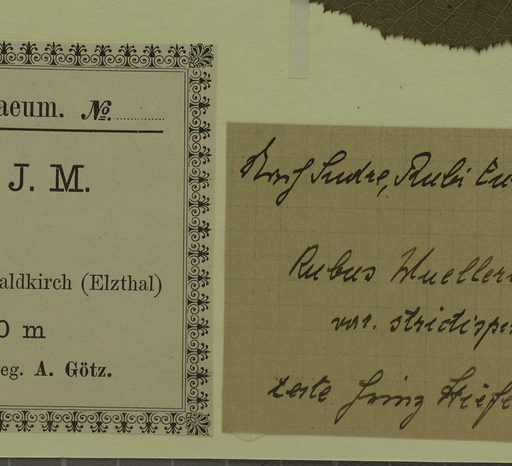 aeum. No.
J. M.
aldkirch (Elzthal)
0 m
eg. A. Götz.
Sudre, Rubi Eu
Rubus Muelleri
var. strictispi
teste